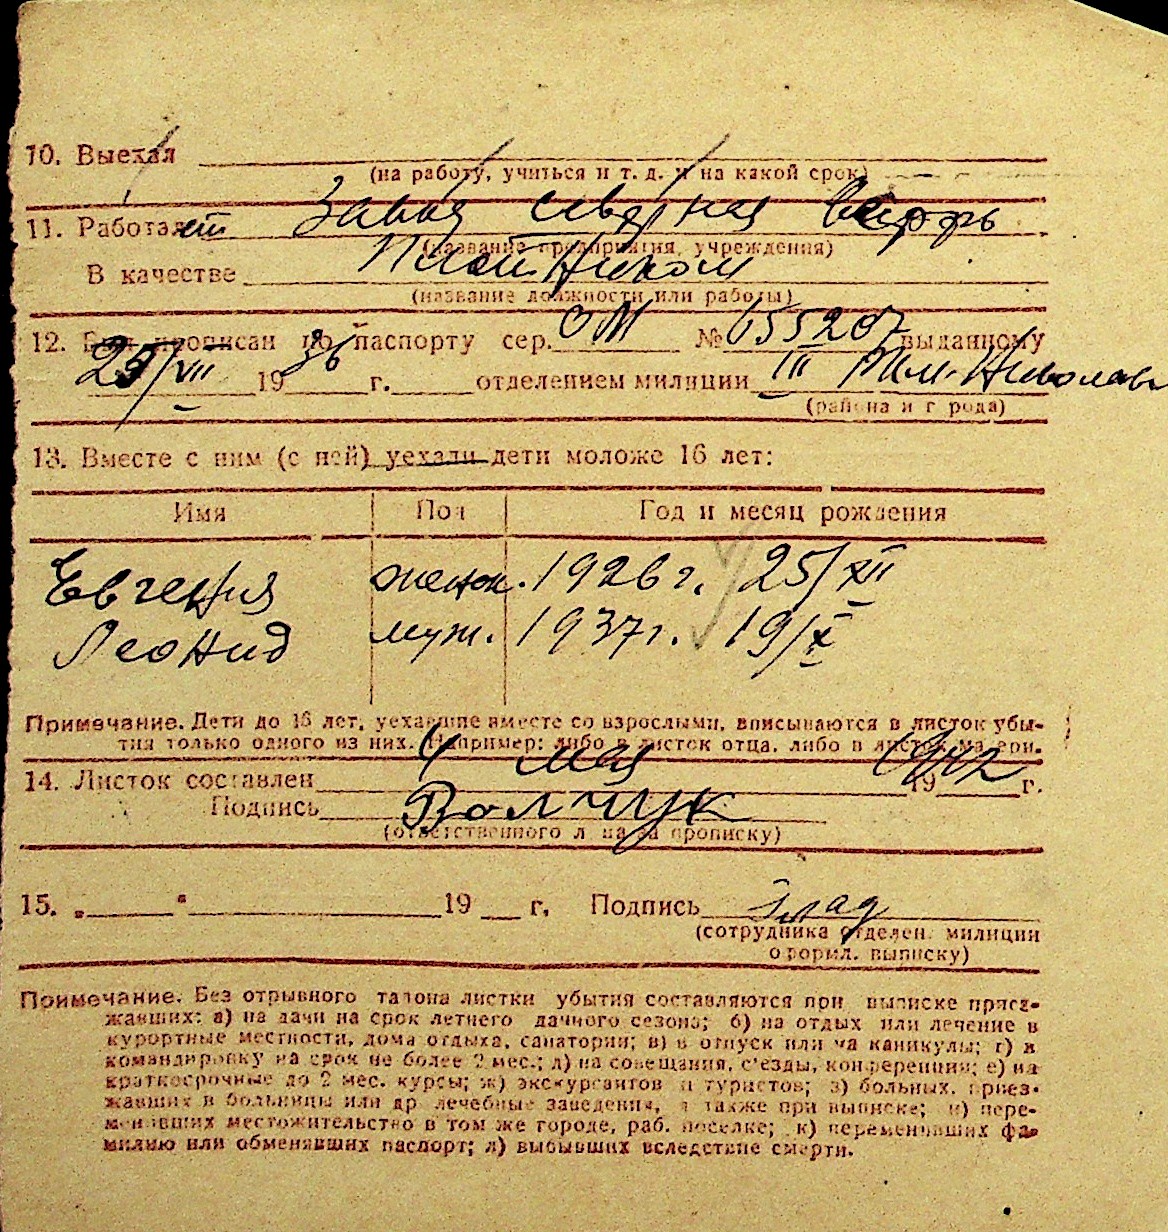 10. Выехал
(на работу, учиться и т. д. и на какой срок)
11. Работает Завод северная верфь
(название предприятия, учреждения)
В качестве Плотником
(название должности или работы)
12. Был прописан по паспорту сер. ОМ № 655207 выданному
25/VII 1936 г. отделением милиции III Николаев
(района и города)
13. Вместе с ним (с ней) уехали дети моложе 16 лет:
Имя Пол Год и месяц рождения
Евгения женск. 1926 г. 25/XII
Леонид муж. 1937 г. 19/X
Примечание. Дети до 16 лет, уехавшие вместе со взрослыми, вписываются в листок убы-
тия только одного из них. Например: либо в листок отца, либо в листок матери.
14. Листок составлен 4 мая 1942 г.
Подпись Волчук
(ответственного лица за прописку)
15. „ " 19 г. Подпись
(сотрудника отделен. милиции
оформл. выписку)
Примечание. Без отрывного талона листки убытия составляются при выписке приез-
жавших: а) на дачи на срок летнего дачного сезона; б) на отдых или лечение в
курортные местности, дома отдыха, санатории; в) в отпуск или на каникулы; г) в
командировку на срок не более 2 мес.; д) на совещания, с'езды, конференции; е) на
краткосрочные до 2 мес. курсы; ж) экскурсантов и туристов; з) больных, приез-
жавших в больницы или др лечебные заведения, а также при выписке; и) пере-
менивших местожительство в том же городе, раб. поселке; к) переменивших фа-
милию или обменявших паспорт; л) выбывших вследствие смерти.